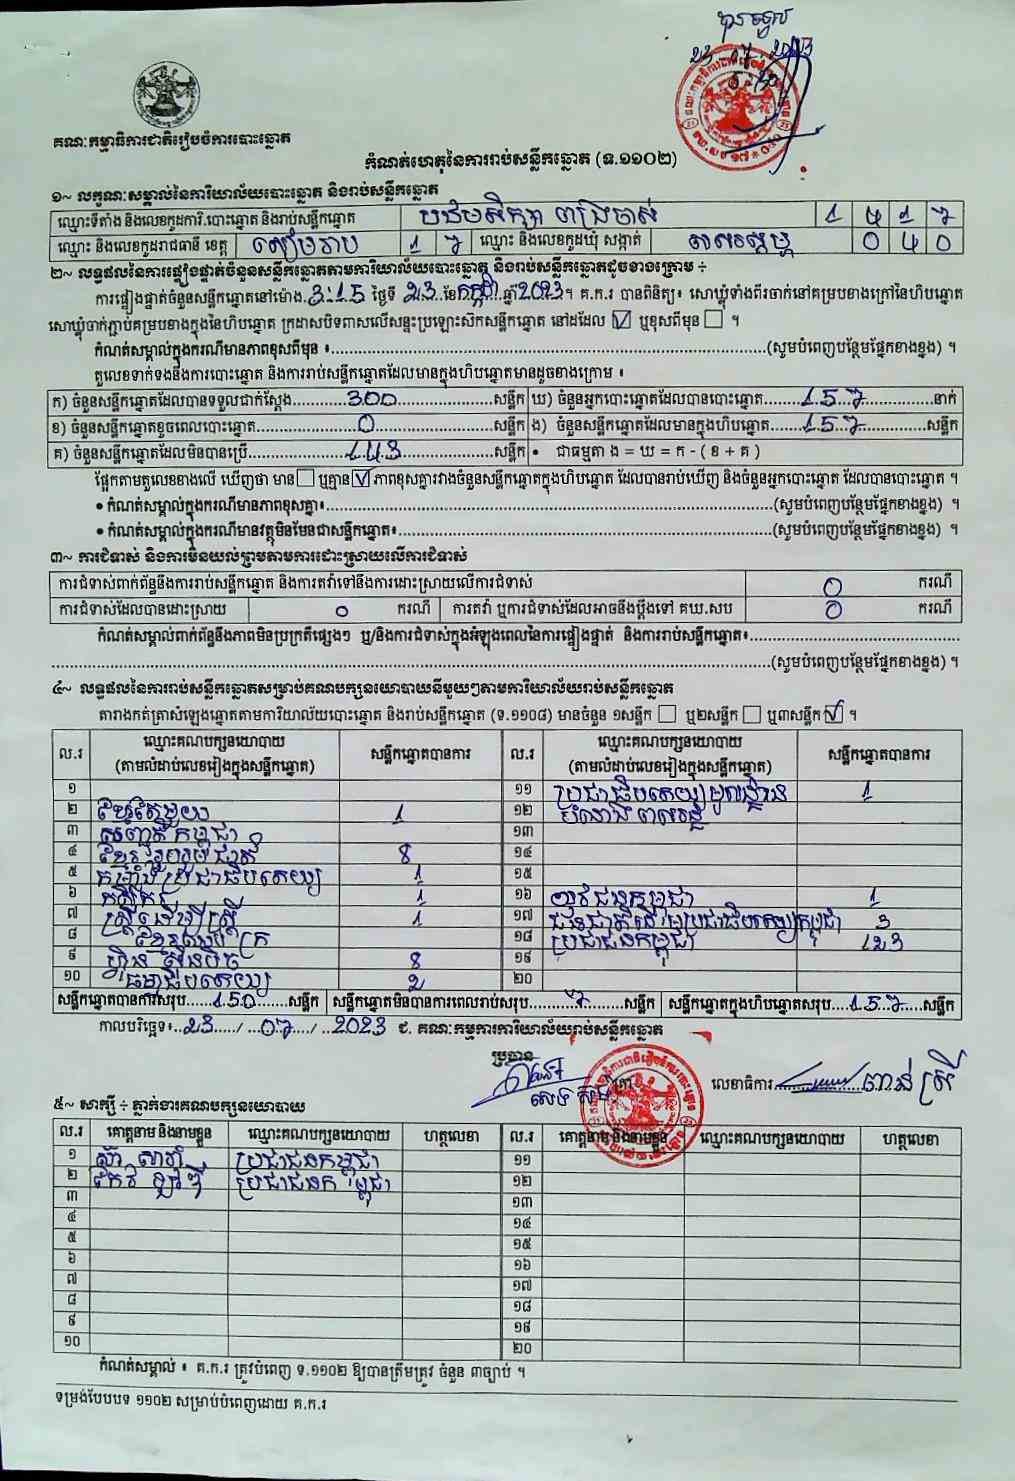 បានទទួល
23 07 2023
គណៈកម្មាធិការជាតិរៀបចំការបោះឆ្នោត
កំណត់ហេតុនៃការរាប់សន្លឹកឆ្នោត (ទ.១១០២)
១~ លក្ខណៈសម្គាល់នៃការិយាល័យបោះឆ្នោត និងរាប់សន្លឹកឆ្នោត
ឈ្មោះទីតាំង និងលេខកូដការិ.បោះឆ្នោត និងរាប់សន្លឹកឆ្នោត បឋមសិក្សា ពង្រចាស់ 1 4 1 7
ឈ្មោះ និងលេខកូដរាជធានី ខេត្ត សៀមរាប 1 7 ឈ្មោះ និងលេខកូដឃុំ សង្កាត់ 0 4 0
២~ លទ្ធផលនៃការផ្ទៀងផ្ទាត់ចំនួនសន្លឹកឆ្នោតតាមការិយាល័យបោះឆ្នោត និងរាប់សន្លឹកឆ្នោតដូចខាងក្រោម ÷
ការផ្ទៀងផ្ទាត់ចំនួនសន្លឹកឆ្នោតនៅម៉ោង.3:15 ថ្ងៃទី 23 ខែកក្កដា ឆ្នាំ 2023។ គ.ក.រ បានពិនិត្យ៖ សោឃ្លុំទាំងពីរចាក់នៅគម្របខាងក្រៅនៃហិបឆ្នោត
សោឃ្លុំចាក់ភ្ជាប់គម្របខាងក្នុងនៃហិបឆ្នោត ក្រដាសបិទពាសលើសន្ទះប្រឡោះស៊កសន្លឹកឆ្នោត នៅដដែល ☑ ឬខុសពីមុន ☐ ។
កំណត់សម្គាល់ក្នុងករណីមានភាពខុសពីមុន ៖...(សូមបំពេញបន្ថែមផ្នែកខាងខ្នង) ។
តួលេខទាក់ទងនឹងការបោះឆ្នោត និងការរាប់សន្លឹកឆ្នោតដែលមានក្នុងហិបឆ្នោតមានដូចខាងក្រោម ៖
ក) ចំនួនសន្លឹកឆ្នោតដែលបានទទួលជាក់ស្តែង...300...សន្លឹក ឃ) ចំនួនអ្នកបោះឆ្នោតដែលបានបោះឆ្នោត...157...នាក់
ខ) ចំនួនសន្លឹកឆ្នោតខូចពេលបោះឆ្នោត...0...សន្លឹក ង) ចំនួនសន្លឹកឆ្នោតដែលមានក្នុងហិបឆ្នោត...157...សន្លឹក
គ) ចំនួនសន្លឹកឆ្នោតដែលមិនបានប្រើ...143...សន្លឹក • ជាធម្មតា ង = ឃ = ក - ( ខ + គ )
ផ្អែកតាមតួលេខខាងលើ ឃើញថា មាន ☐ ឬគ្មាន ☑ ភាពខុសគ្នារវាងចំនួនសន្លឹកឆ្នោតក្នុងហិបឆ្នោត ដែលបានរាប់ឃើញ និងចំនួនអ្នកបោះឆ្នោត ដែលបានបោះឆ្នោត ។
• កំណត់សម្គាល់ក្នុងករណីមានភាពខុសគ្នា៖...(សូមបំពេញបន្ថែមផ្នែកខាងខ្នង) ។
• កំណត់សម្គាល់ក្នុងករណីមានវត្ថុមិនមែនជាសន្លឹកឆ្នោត៖...(សូមបំពេញបន្ថែមផ្នែកខាងខ្នង) ។
៣~ ការជំទាស់ និងការមិនយល់ព្រមតាមការដោះស្រាយលើការជំទាស់
ការជំទាស់ពាក់ព័ន្ធនឹងការរាប់សន្លឹកឆ្នោត និងការតវ៉ាទៅនឹងការដោះស្រាយលើការជំទាស់ 0 ករណី
ការជំទាស់ដែលបានដោះស្រាយ 0 ករណី ការតវ៉ា ឬការជំទាស់ដែលអាចនឹងប្តឹងទៅ គឃ.សប 0 ករណី
កំណត់សម្គាល់ពាក់ព័ន្ធនឹងភាពមិនប្រក្រតីផ្សេងៗ ឬ/និងការជំទាស់ក្នុងអំឡុងពេលនៃការផ្ទៀងផ្ទាត់ និងការរាប់សន្លឹកឆ្នោត៖...
...(សូមបំពេញបន្ថែមផ្នែកខាងខ្នង) ។
៤~ លទ្ធផលនៃការរាប់សន្លឹកឆ្នោតសម្រាប់គណបក្សនយោបាយនីមួយៗតាមការិយាល័យរាប់សន្លឹកឆ្នោត
តារាងកត់ត្រាសំឡេងឆ្នោតតាមការិយាល័យបោះឆ្នោត និងរាប់សន្លឹកឆ្នោត (ទ.១១០៨) មានចំនួន ១សន្លឹក ☐ ឬ២សន្លឹក ☐ ឬ៣សន្លឹក ☑ ។
ល.រ ឈ្មោះគណបក្សនយោបាយ (តាមលំដាប់លេខរៀងក្នុងសន្លឹកឆ្នោត) សន្លឹកឆ្នោតបានការ ល.រ ឈ្មោះគណបក្សនយោបាយ (តាមលំដាប់លេខរៀងក្នុងសន្លឹកឆ្នោត) សន្លឹកឆ្នោតបានការ
១ ១១ ប្រជាធិបតេយ្យមូលដ្ឋាន 1
២ ខ្មែរតែមួយ 1 ១២
៣ សញ្ជាតិកម្ពុជា ១៣
៤ ខ្មែររួបរួមជាតិ 8 ១៤
៥ កម្លាំងប្រជាធិបតេយ្យ 1 ១៥
៦ កសិករ 1 ១៦ យុវជនកម្ពុជា 1
៧ ស្ត្រីដើម្បីស្ត្រី 1 ១៧ ជនជាតិដើមប្រជាធិបតេយ្យកម្ពុជា 3
៨ ១៨ ប្រជាជនកម្ពុជា 123
៩ ហ៊្វុនស៊ិនប៉ិច 8 ១៩
១០ ធម្មាធិបតេយ្យ 2 ២០
សន្លឹកឆ្នោតបានការសរុប...150...សន្លឹក សន្លឹកឆ្នោតមិនបានការពេលរាប់សរុប...7...សន្លឹក សន្លឹកឆ្នោតក្នុងហិបឆ្នោតសរុប...157...សន្លឹក
កាលបរិច្ឆេទ៖..23../..07../..2023 ជ. គណៈកម្មការការិយាល័យរាប់សន្លឹកឆ្នោត
ប្រធាន
លេខាធិការ
៥~ សាក្សី ÷ ភ្នាក់ងារគណបក្សនយោបាយ
ល.រ គោត្តនាម និងនាមខ្លួន ឈ្មោះគណបក្សនយោបាយ ហត្ថលេខា ល.រ គោត្តនាម និងនាមខ្លួន ឈ្មោះគណបក្សនយោបាយ ហត្ថលេខា
១ ប្រជាជនកម្ពុជា ១១
២ ប្រជាជនកម្ពុជា ១២
៣ ១៣
៤ ១៤
៥ ១៥
៦ ១៦
៧ ១៧
៨ ១៨
៩ ១៩
១០ ២០
កំណត់សម្គាល់ ៖ គ.ក.រ ត្រូវបំពេញ ទ.១១០២ ឱ្យបានត្រឹមត្រូវ ចំនួន ៣ច្បាប់ ។
ទម្រង់បែបបទ ១១០២ សម្រាប់បំពេញដោយ គ.ក.រ